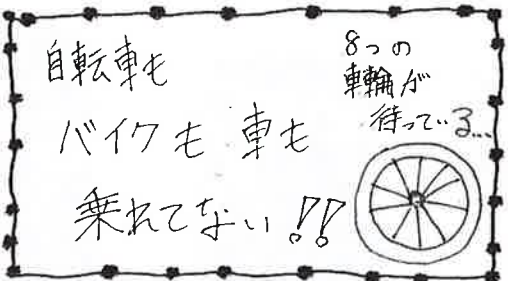 自転車も
バイクも 車も
乗れてない!!
8つの
車輪が
待っている...